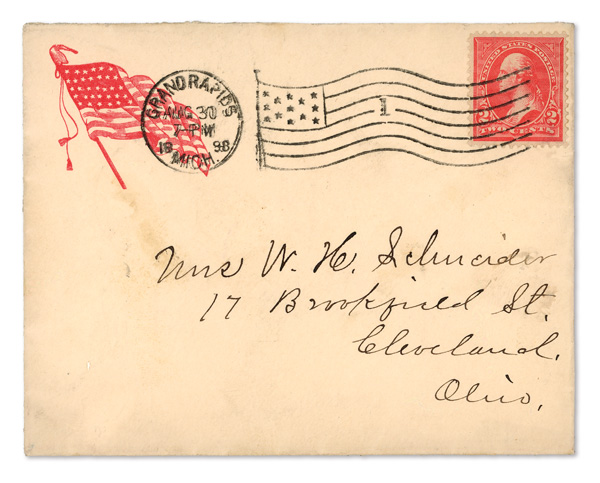 GRAND RAPIDS
AUG 30
7-PM
18 98
MICH.
1
UNITED STATES POSTAGE
2 2
TWO CENTS
Mrs W. H. Schneider
17 Brookfield St.
Cleveland.
Ohio.